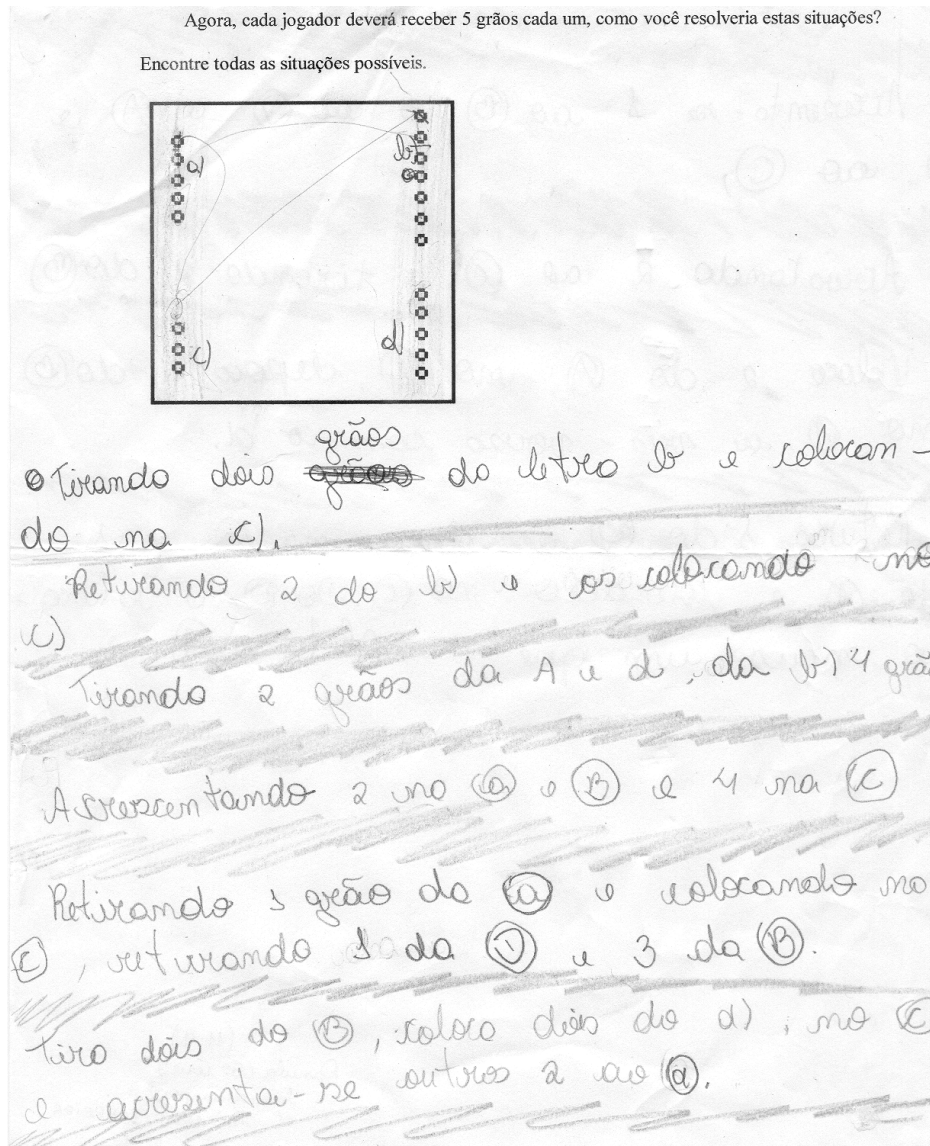 Agora, cada jogador deverá receber 5 grãos cada um, como você resolveria estas situações?
Encontre todas as situações possíveis.
a)
b)
c)
d)
grãos
Tirando dois do letra b e colocan-
do na c).
Retirando 2 do b) e os colocando no
c)
Tirando 2 grãos da A e d, da b) 4 grã
Acrescentando 2 no (a) e (B) e 4 na (C)
Retirando 1 grão do (a) e colocando no
(C), retirando 1 da (D) e 3 da (B).
Tiro dois do (B), coloco dois do d), no (C)
e acresenta-se outros 2 ao (a).